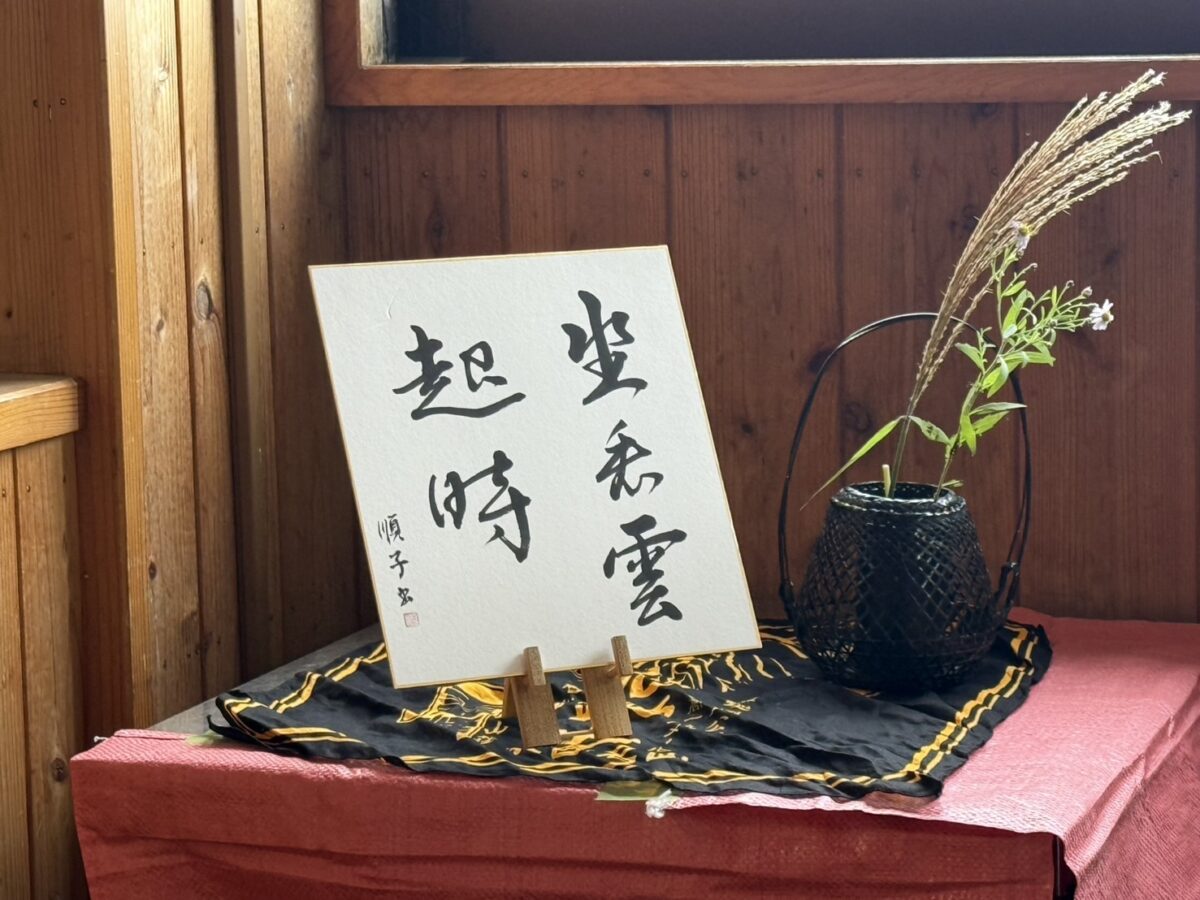 坐看雲
起時
順子書